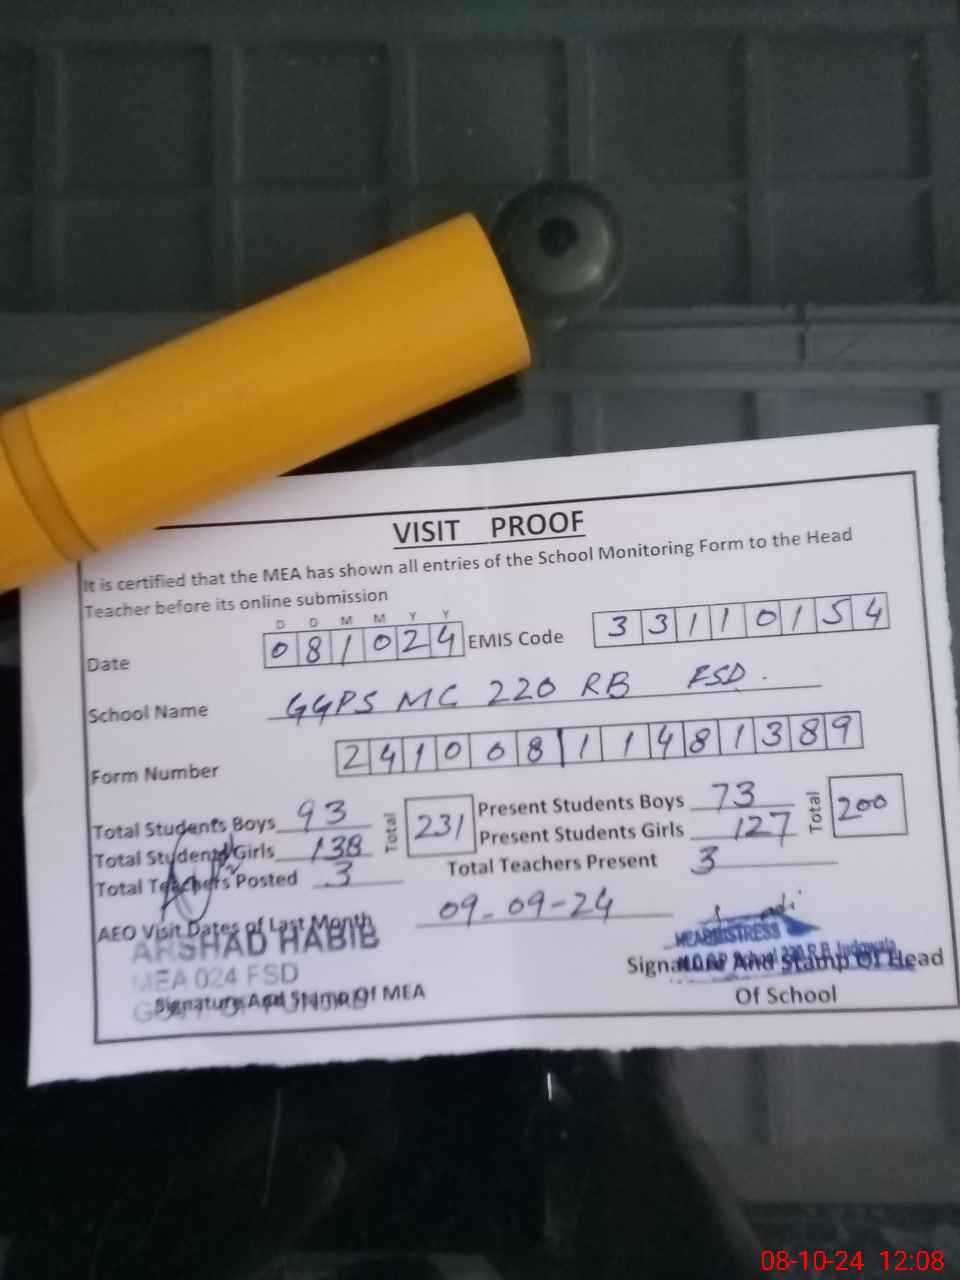 VISIT PROOF
It is certified that the MEA has shown all entries of the School Monitoring Form to the Head
Teacher before its online submission
D D M M Y Y
Date 081024 EMIS Code 33110154
School Name GGPS MC 220 RB FSD.
Form Number 2410081148 1389
Total Students Boys 93 Total 231 Present Students Boys 73 Total 200
Total Students Girls 138 Present Students Girls 127
Total Teachers Posted 3 Total Teachers Present 3
AEO Visit Dates of Last Month 09-09-24
ARSHAD HABIB
MEA 024 FSD
GOVT OF PUNJAB
Signature And Stamp Of MEA
HEADMISTRESS
Signature And Stamp Of Head
Of School
08-10-24 12:08